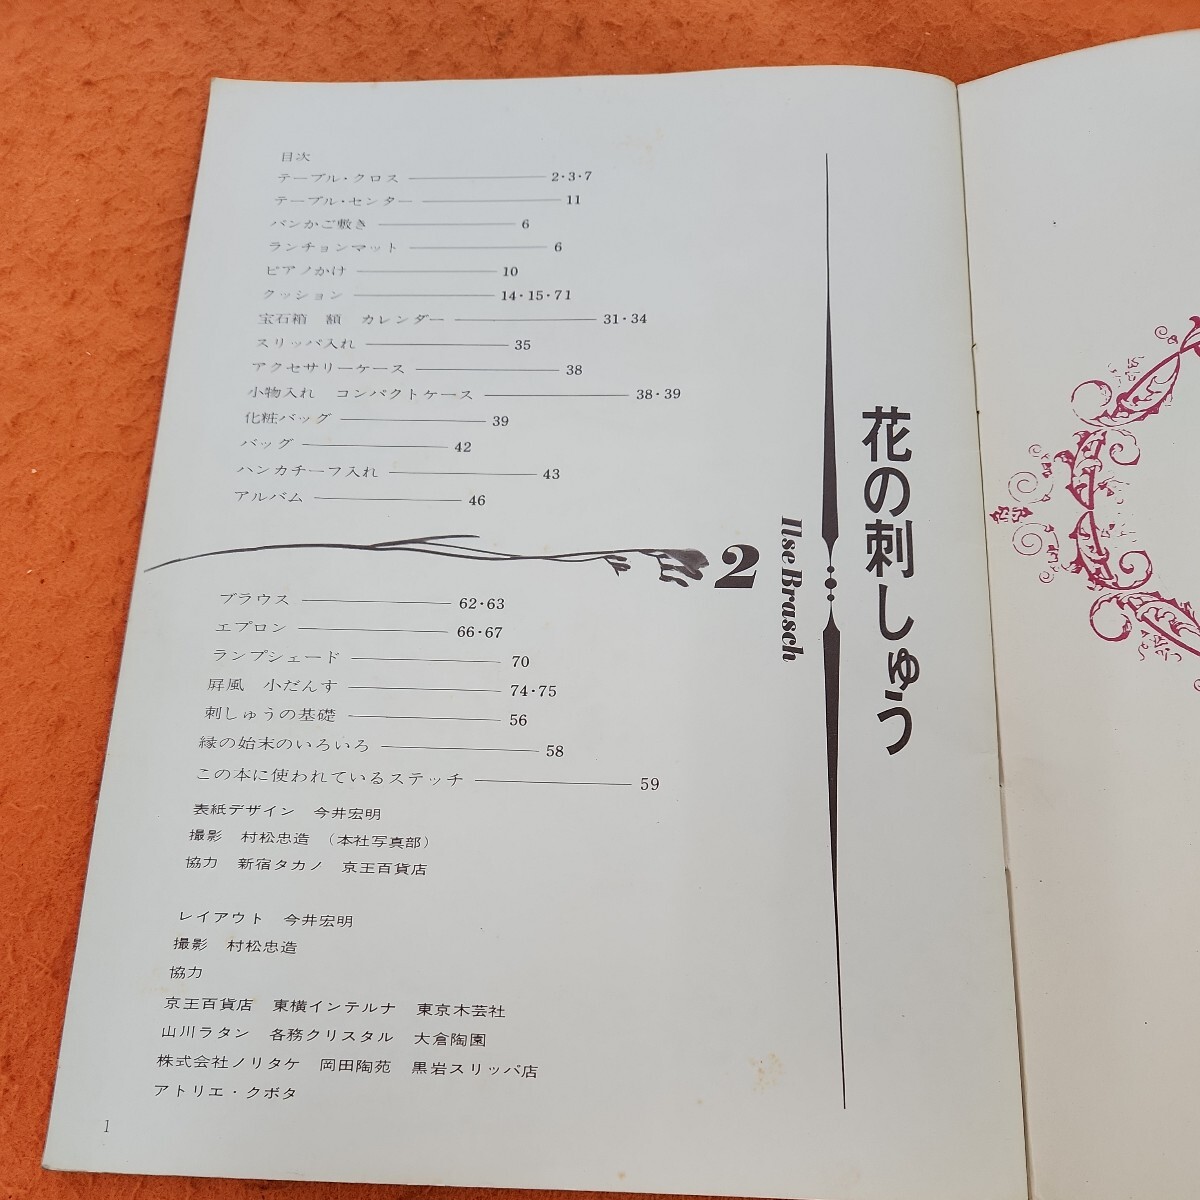 花の刺しゅう
2
Ilse Brasch
目次
テーブル・クロス 2・3・7
テーブル・センター 11
パンかご敷き 6
ランチョンマット 6
ピアノかけ 10
クッション 14・15・71
宝石箱 額 カレンダー 31・34
スリッパ入れ 35
アクセサリーケース 38
小物入れ コンパクトケース 38・39
化粧バッグ 39
バッグ 42
ハンカチーフ入れ 43
アルバム 46
ブラウス 62・63
エプロン 66・67
ランプシェード 70
屏風 小だんす 74・75
刺しゅうの基礎 56
縁の始末のいろいろ 58
この本に使われているステッチ 59
表紙デザイン 今井宏明
撮影 村松忠造 （本社写真部）
協力 新宿タカノ 京王百貨店
レイアウト 今井宏明
撮影 村松忠造
協力
京王百貨店 東横インテルナ 東京木芸社
山川ラタン 各務クリスタル 大倉陶園
株式会社ノリタケ 岡田陶苑 黒岩スリッパ店
アトリエ・クボタ
1